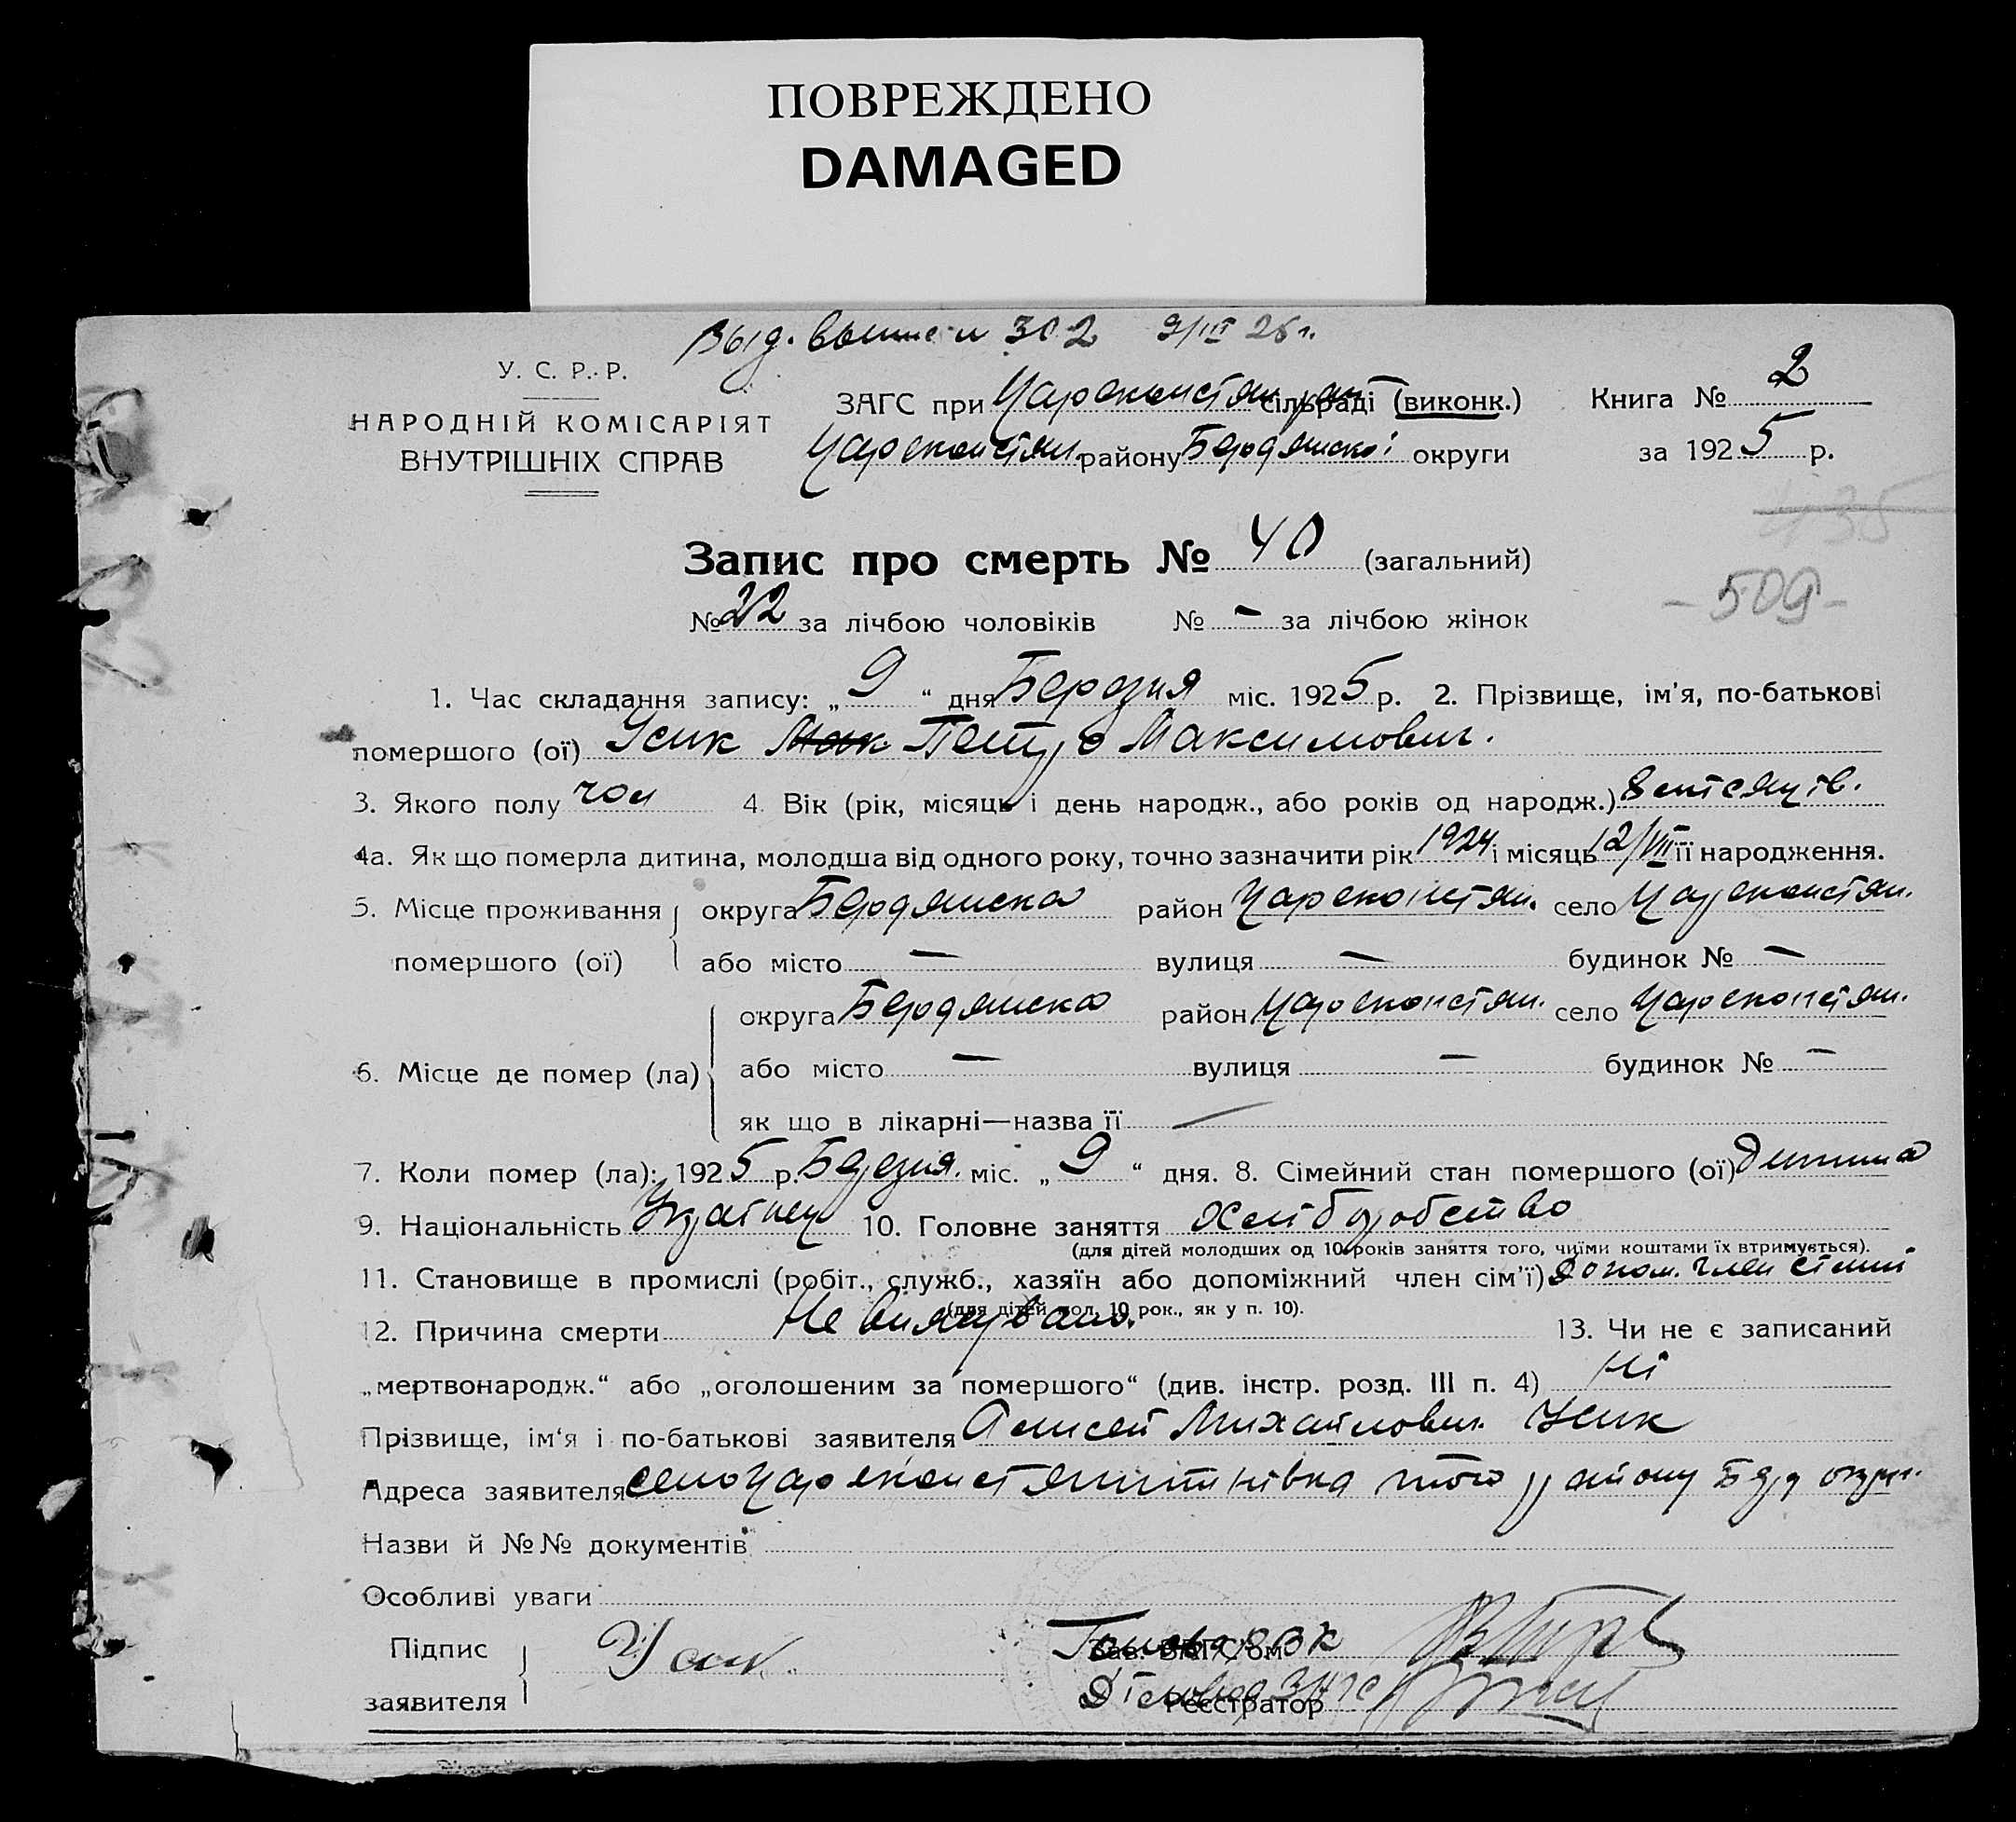 ПОВРЕЖДЕНО
DAMAGED
Выд. 302 9/III 25 г.
У. С. Р. Р.
НАРОДНІЙ КОМІСАРІЯТ
ВНУТРІШНІХ СПРАВ
ЗАГС при Цареконстян. сільраді (виконк.)
Цареконстян. району Бердянської округи
Книга № 2
за 1925 р.
435
- 509 -
Запис про смерть № 40 (загальний)
№ 22 за лічбою чоловіків № — за лічбою жінок
1. Час складання запису: „ 9 “ дня Березня міс. 1925 р. 2. Прізвище, ім'я, по-батькові
помершого (ої) Усик Мак Петро Максимович.
3. Якого полу чол 4. Вік (рік, місяць і день народж., або років од народж.) 8 місяців.
4а. Як що померла дитина, молодша від одного року, точно зазначити рік 1924 і місяць 12/VII її народження.
5. Місце проживання помершого (ої) округа Бердянска район Цареконстян. село Цареконстян.
або місто — вулиця — будинок № —
6. Місце де помер (ла) округа Бердянска район Цареконстян. село Цареконстян.
або місто — вулиця — будинок № —
як що в лікарні—назва її —
7. Коли помер (ла): 1925 р. Березня. міс. „ 9 “ дня. 8. Сімейний стан помершого (ої) Дитина
9. Національність Українец 10. Головне заняття Хліборобство
(для дітей молодших од 10 років заняття того, чиїми коштами їх втримується).
11. Становище в промислі (робіт., служб., хазяїн або допоміжний член сім'ї) допом. член сімїі
(для дітей мол. 10 рок., як у п. 10).
12. Причина смерти Не 13. Чи не є записаний
„мертвонародж.“ або „оголошеним за помершого“ (див. інстр. розд. III п. 4) Ні
Прізвище, ім'я і по-батькові заявителя Алисей Михайлович Усик
Адреса заявителя село Цареконстянтинівка того району Берд округи.
Назви й №№ документів
Особливі уваги
Підпис заявителя Усик
Зав. ЗАГС'ом
Діловод ЗАГС
Реєстратор